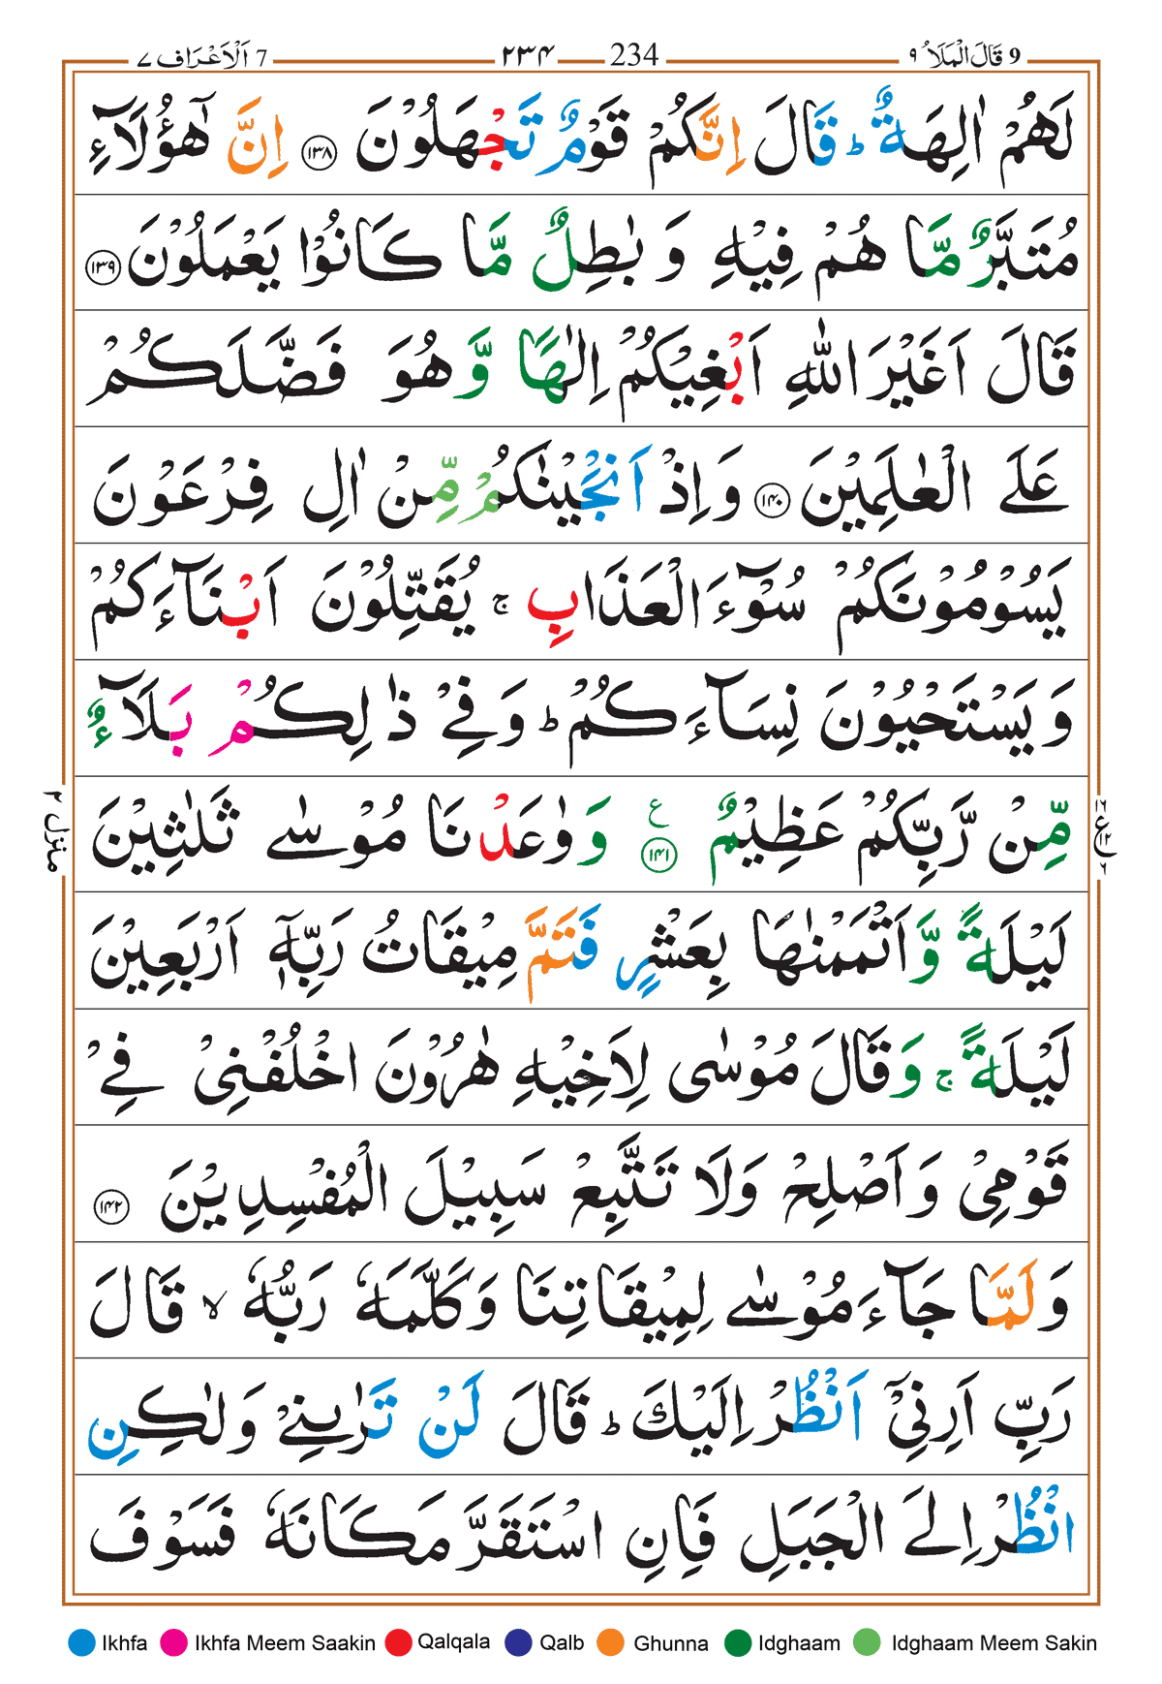 9 قَالَ الْمَلَاُ ٩ 234 ٢٣٤ 7 اَلْاَعْرَاف ٧
لَهُمْ اٰلِهَةٌ ؕ قَالَ اِنَّكُمْ قَوْمٌ تَجْهَلُوْنَ ﴿۱۳۸﴾ اِنَّ هٰٓؤُلَآءِ
مُتَبَّرٌ مَّا هُمْ فِيْهِ وَ بٰطِلٌ مَّا كَانُوْا يَعْمَلُوْنَ ﴿۱۳۹﴾
قَالَ اَغَيْرَ اللّٰهِ اَبْغِيْكُمْ اِلٰهًا وَّ هُوَ فَضَّلَكُمْ
عَلَى الْعٰلَمِيْنَ ﴿۱۴۰﴾ وَاِذْ اَنْجَيْنٰكُمْ مِّنْ اٰلِ فِرْعَوْنَ
يَسُوْمُوْنَكُمْ سُوْٓءَ الْعَذَابِ ۚ يُقَتِّلُوْنَ اَبْنَآءَكُمْ
وَيَسْتَحْيُوْنَ نِسَآءَكُمْ ؕ وَفِيْ ذٰلِكُمْ بَلَآءٌ
مِّنْ رَّبِّكُمْ عَظِيْمٌ ﴿۱۴۱﴾ ع وَوٰعَدْنَا مُوْسٰى ثَلٰثِيْنَ
لَيْلَةً وَّاَتْمَمْنٰهَا بِعَشْرٍ فَتَمَّ مِيْقَاتُ رَبِّهٖۤ اَرْبَعِيْنَ
لَيْلَةً ۚ وَقَالَ مُوْسٰى لِاَخِيْهِ هٰرُوْنَ اخْلُفْنِيْ فِيْ
قَوْمِيْ وَاَصْلِحْ وَلَا تَتَّبِعْ سَبِيْلَ الْمُفْسِدِيْنَ ﴿۱۴۲﴾
وَلَمَّا جَآءَ مُوْسٰى لِمِيْقَاتِنَا وَكَلَّمَهٗ رَبُّهٗ ۙ قَالَ
رَبِّ اَرِنِيْٓ اَنْظُرْ اِلَيْكَ ؕ قَالَ لَنْ تَرٰىنِيْ وَلٰكِنِ
انْظُرْ اِلَى الْجَبَلِ فَاِنِ اسْتَقَرَّ مَكَانَهٗ فَسَوْفَ
منزل ٢
Ikhfa Ikhfa Meem Saakin Qalqala Qalb Ghunna Idghaam Idghaam Meem Sakin